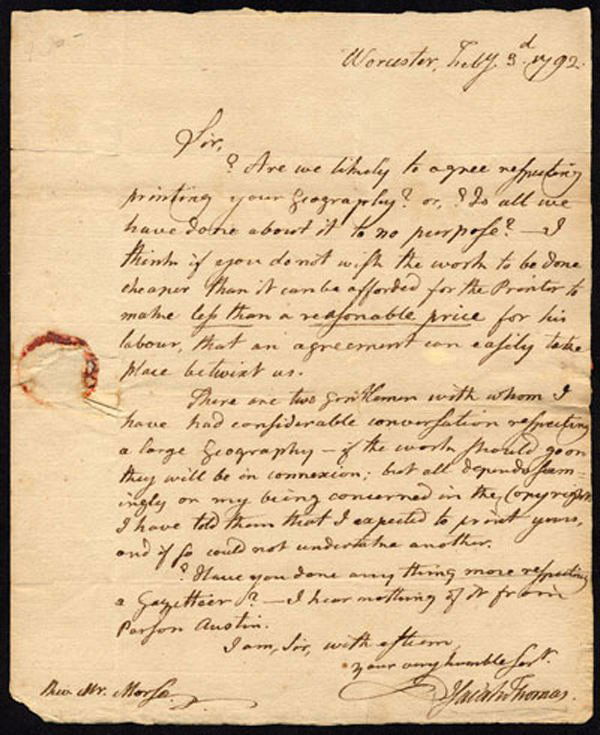 Worcester, Feby. 3d. 1792.
Sir,
? Are we likely to agree respecting
printing your Geography? or, ? Is all we
have done about it to no purpose? — I
think if you do not wish the work to be done
cheaper than it can be afforded for the Printer to
make less than a reasonable price for his
labour, that an agreement can easily take
place betwixt us.
There are two Gentlemen with whom I
have had considerable conversation respecting
a large Geography — if the work should go on
they will be in connexion; but all depends seem-
ingly on my being concerned in the Copyright.
I have told them that I expected to print yours,
and if so could not undertake another.
? Have you done any thing more respecting
a Gazetteer? — I hear nothing of it from
Parson Austin.
I am, Sir, with esteem,
your very humble Servt.
Isaiah Thomas.
Revd. Mr. Morse